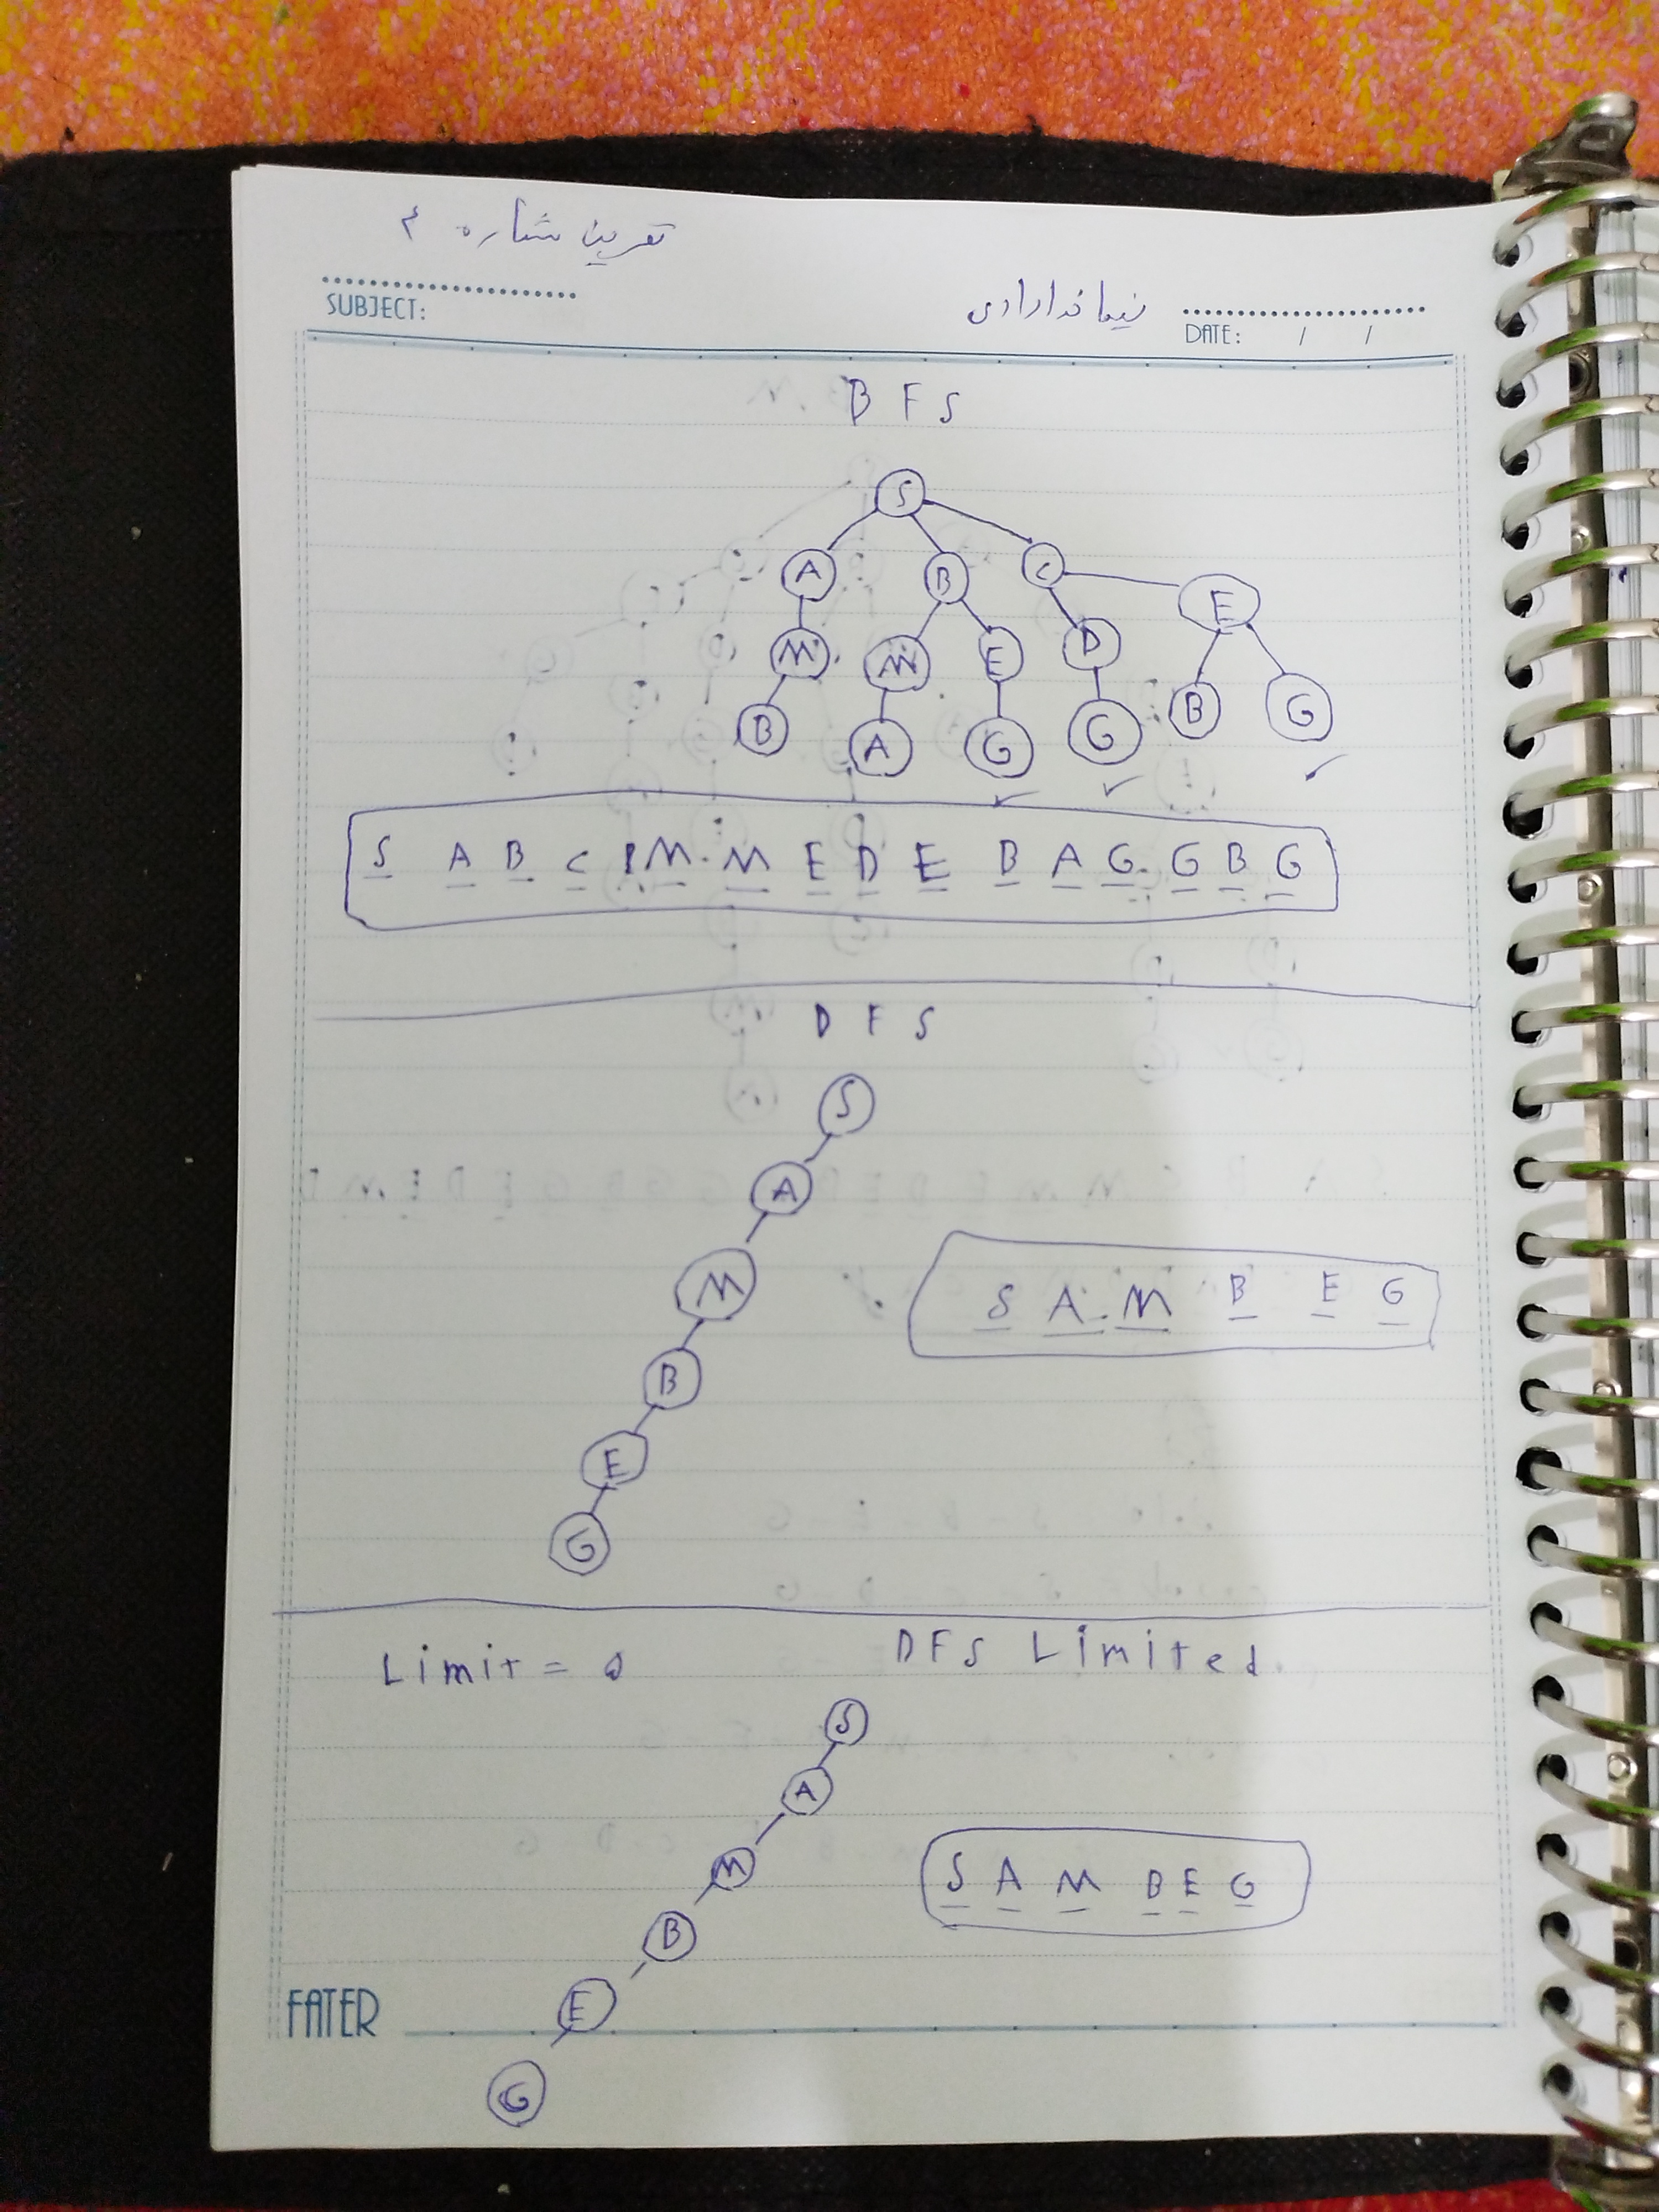 تمرین شماره ۴
SUBJECT:
نیما خدارادی
DATE: / /
B F S
S
A B C E
M M E D B G
B A G G
S A B C M M E D E B A G G B G
D F S
S
A
M
B
E
G
S A M B E G
Limit = ۵
DFS Limited
S
A
M
B
E
G
S A M B E G
FATER